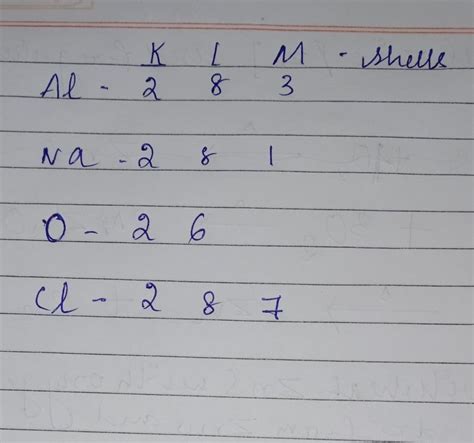 K L M - shells
Al - 2 8 3
Na - 2 8 1
O - 2 6
Cl - 2 8 7